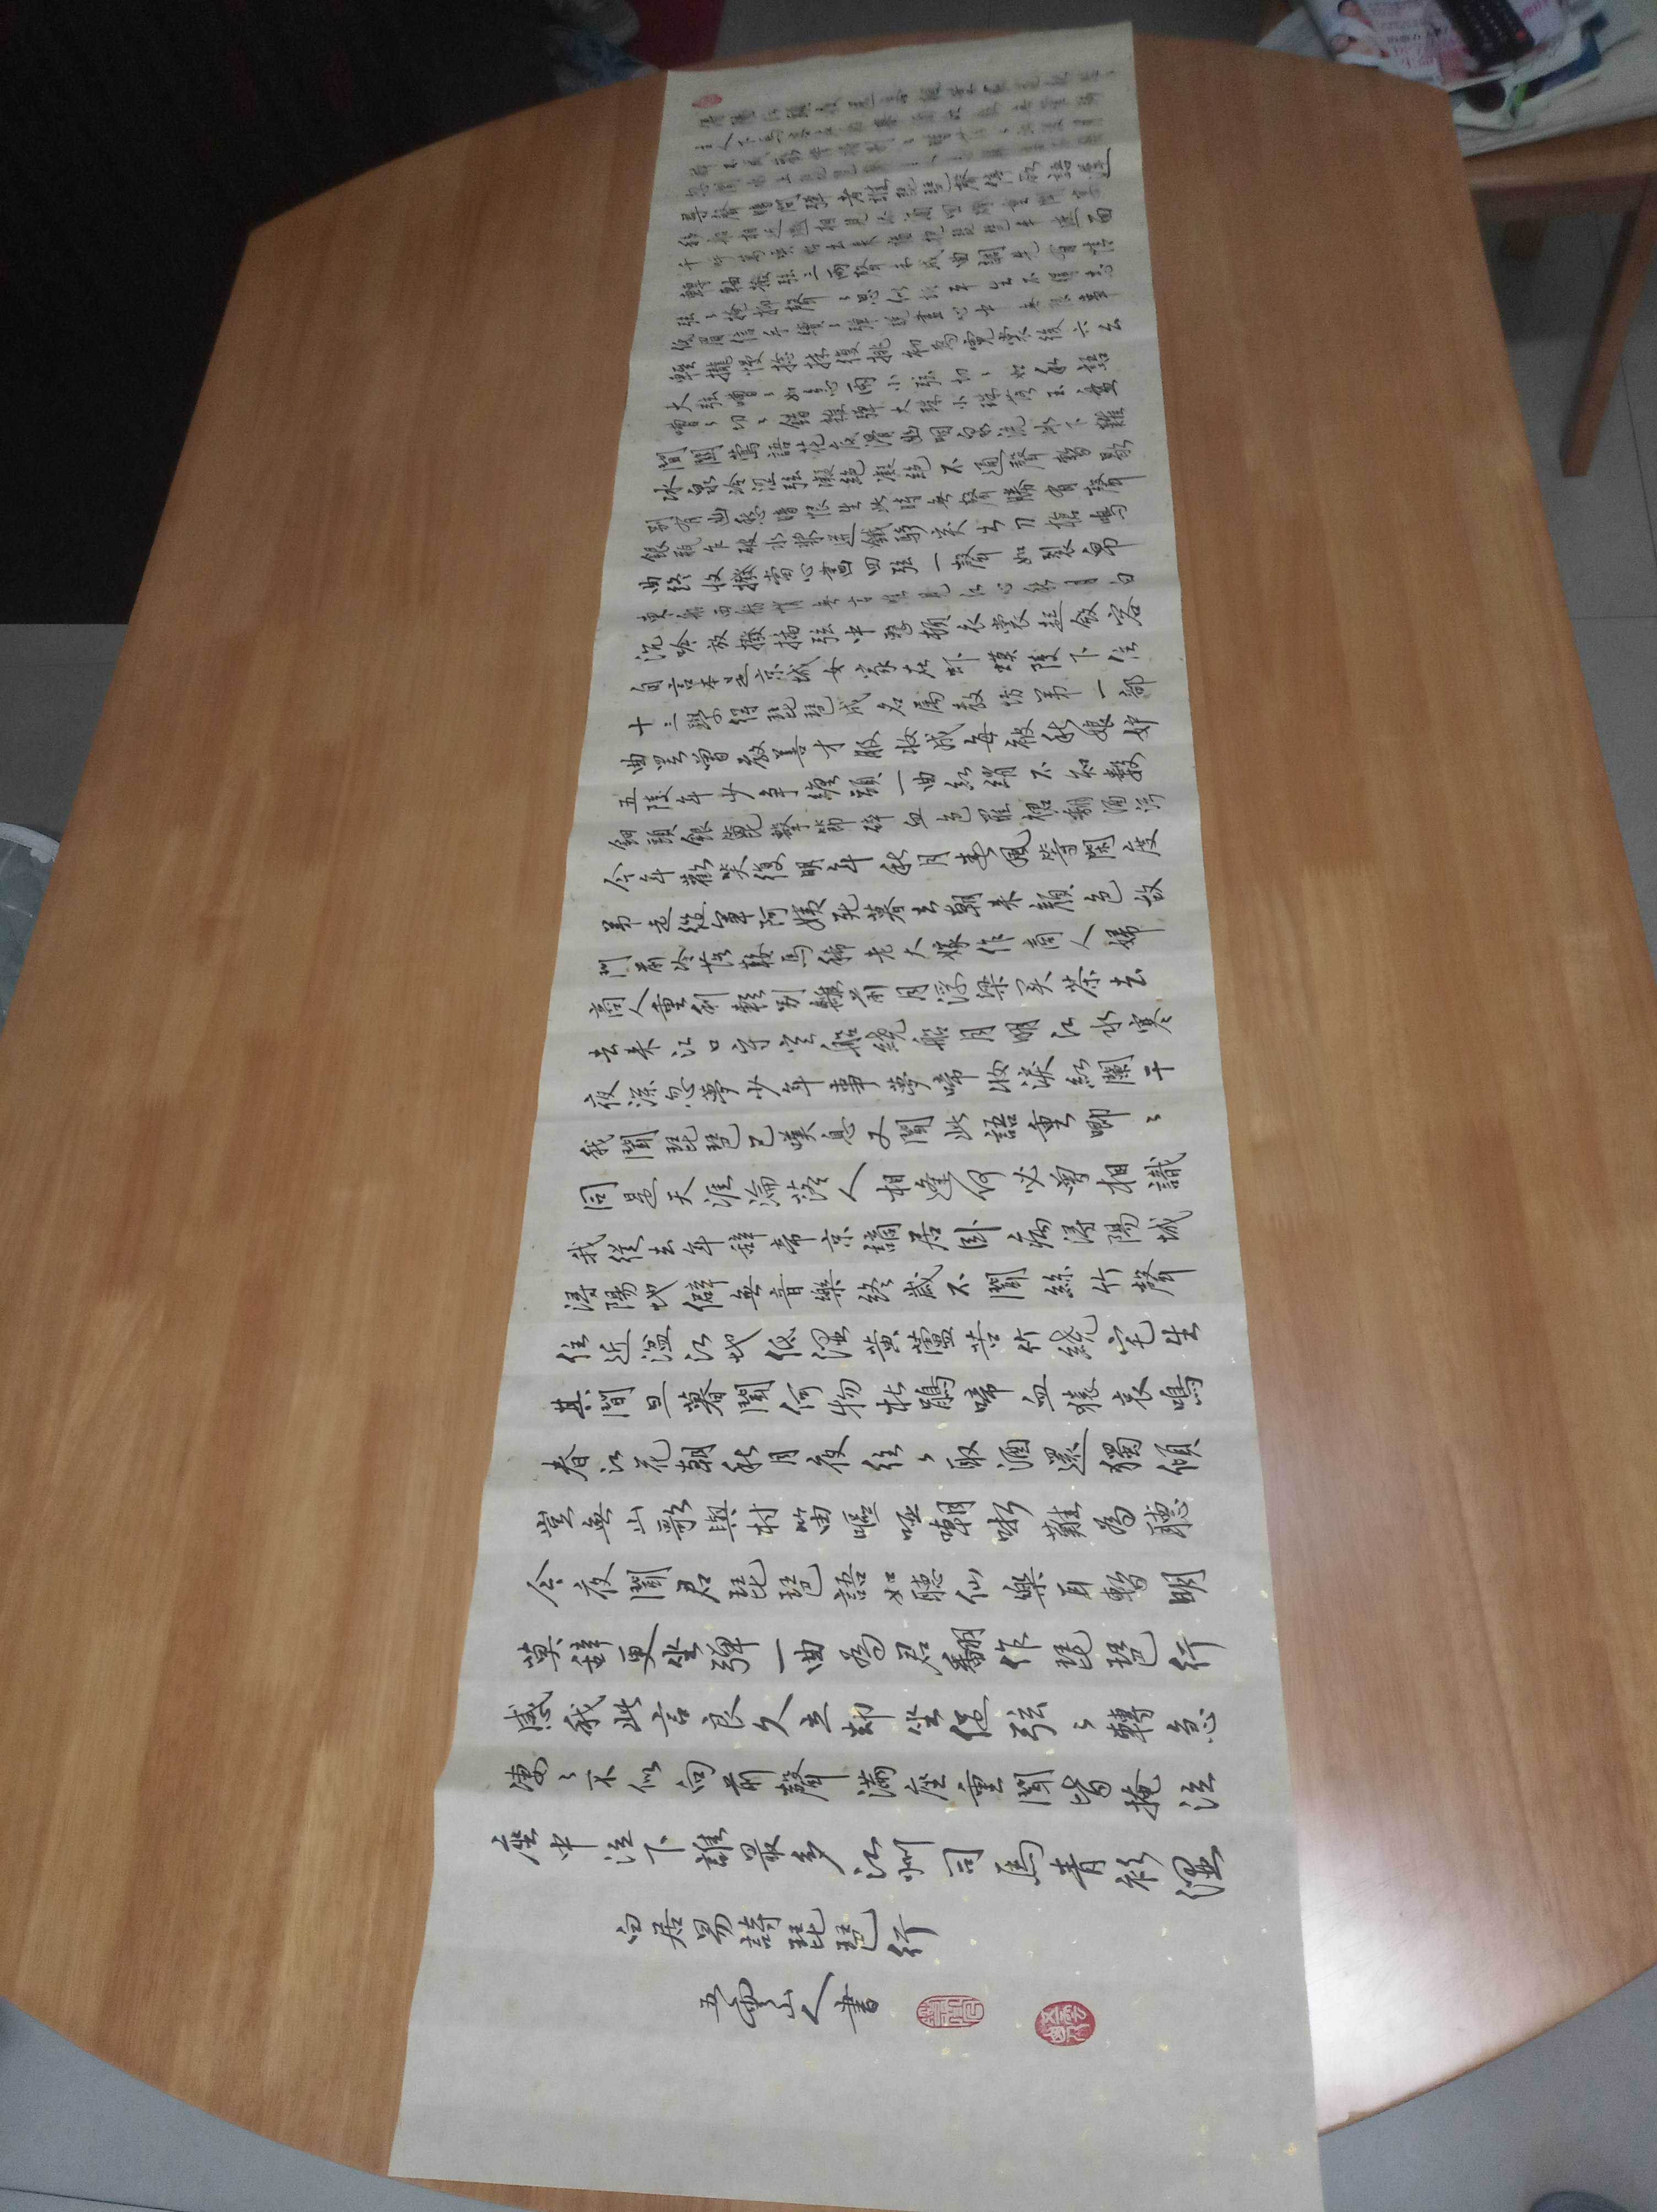 尋聲暗問彈者誰琵琶聲停欲語遲
移船相近邀相見添酒回燈重開宴
千呼萬喚始出來猶抱琵琶半遮面
轉軸撥弦三兩聲未成曲調先有情
弦〻掩抑聲〻思似訴平生不得志
低眉信手續〻彈說盡心中無限事
輕攏慢撚抹復挑初為霓裳後六幺
大弦嘈〻如急雨小弦切〻如私語
嘈〻切〻錯雜彈大珠小珠落玉盤
間關鶯語花底滑幽咽泉流冰下難
冰泉冷澀弦凝絕凝絕不通聲暫歇
別有幽愁暗恨生此時無聲勝有聲
銀瓶乍破水漿迸鐵騎突出刀槍鳴
曲終收撥當心畫四弦一聲如裂帛
東船西舫悄無言唯見江心秋月白
沉吟放撥插弦中整頓衣裳起斂容
自言本是京城女家在蝦蟆陵下住
十三學得琵琶成名屬教坊第一部
曲罷曾教善才服妝成每被秋娘妒
五陵年少爭纏頭一曲紅綃不知數
鈿頭銀篦擊節碎血色羅裙翻酒污
今年歡笑復明年秋月春風等閑度
弟走從軍阿姨死暮去朝來顏色故
門前冷落鞍馬稀老大嫁作商人婦
商人重利輕別離前月浮梁買茶去
去來江口守空船繞船月明江水寒
夜深忽夢少年事夢啼妝淚紅闌干
我聞琵琶已嘆息又聞此語重唧〻
同是天涯淪落人相逢何必曾相識
我從去年辭帝京謫居臥病潯陽城
潯陽地僻無音樂終歲不聞絲竹聲
住近湓江地低濕黃蘆苦竹繞宅生
其間旦暮聞何物杜鵑啼血猿哀鳴
春江花朝秋月夜往〻取酒還獨傾
豈無山歌與村笛嘔啞嘲哳難為聽
今夜聞君琵琶語如聽仙樂耳暫明
莫辭更坐彈一曲為君翻作琵琶行
感我此言良久立却坐促弦〻轉急
淒〻不似向前聲滿座重聞皆掩泣
座中泣下誰最多江州司馬青衫濕
白居易詩琵琶行
五雲山人書